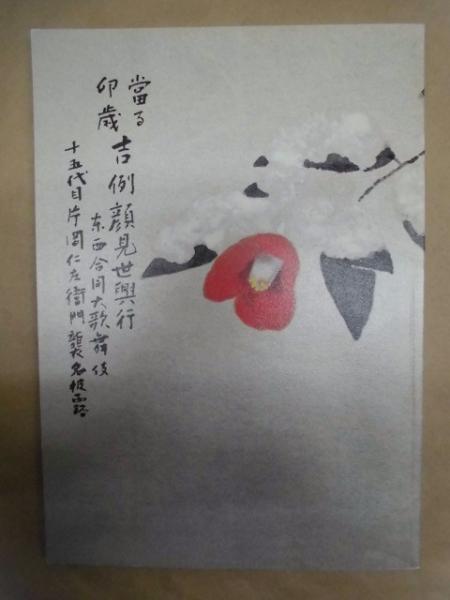 當る
卯歳
吉例顔見世興行
东西合同大歌舞伎
十五代目片岡仁左衛門襲名披露